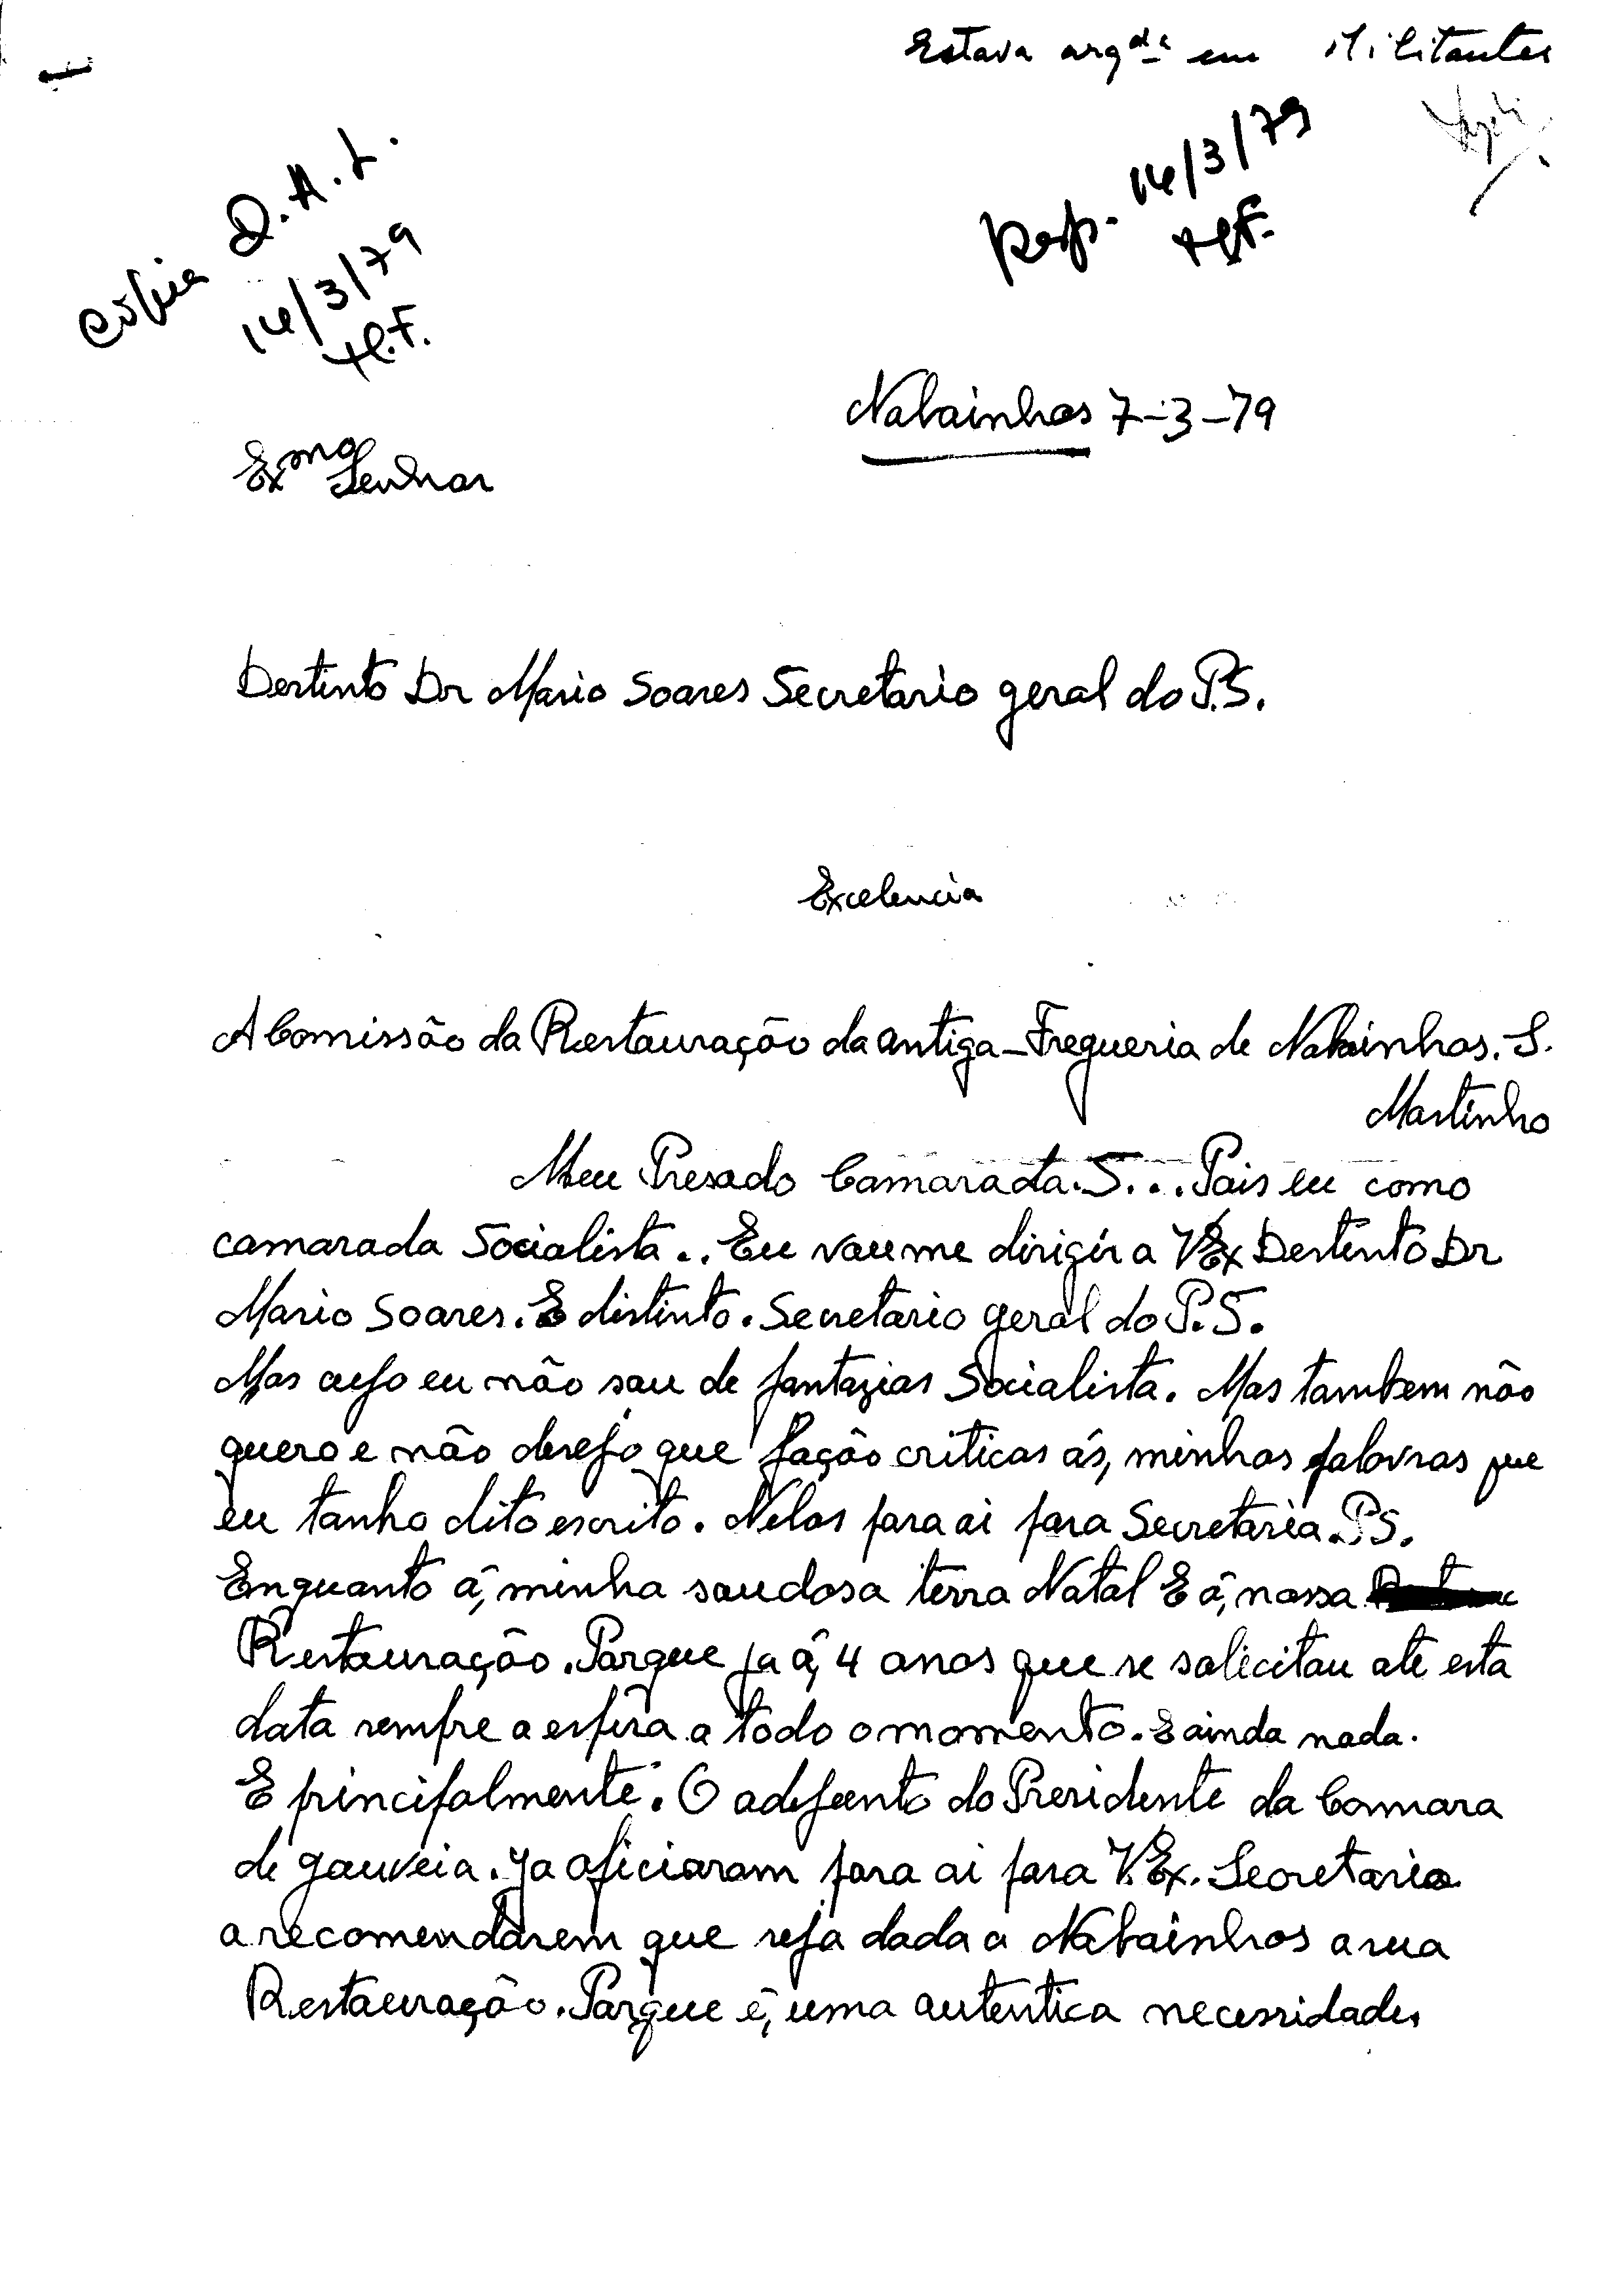 Estava arqdº em Militantes
Cópia D.A.L.
14/3/79
H.F.
Resp. 14/3/79
H.F.
Nabainhos 7-3-79
Exmo Senhor
Destinto Dr Mario Soares Secretario geral do P.S.
Excelencia
A Comissão da Restauração da antiga - Fregueria de Nabainhos. S.
Martinho
Meu Presado Camarada. S... Pois eu como
camarada Socialista.. Eu vou me dirigir a VEx Destinto Dr
Mario Soares. E distinto. Secretario geral do P.S.
Mas cujo eu não sou de fantazias Socialista. Mas tambem não
quero e não desejo que fação criticas ás, minhas palavras que
eu tanho dito escrito. Nelas para ai para Secretaria. PS.
Enquanto á, minha saudosa terra Natal E á, nossa
Restauração. Porque ja á, 4 anos que se solicitou ate esta
data sempre a espera a todo o momento. E ainda nada.
E principalmente. O adejunto do Presidente da Comara
de gouveia. Ja oficiaram para ai para V.Ex. Secretaria
a recomendarem que seja dada a Nabainhos a sua
Restauração. Porque é, uma autentica necessidade.